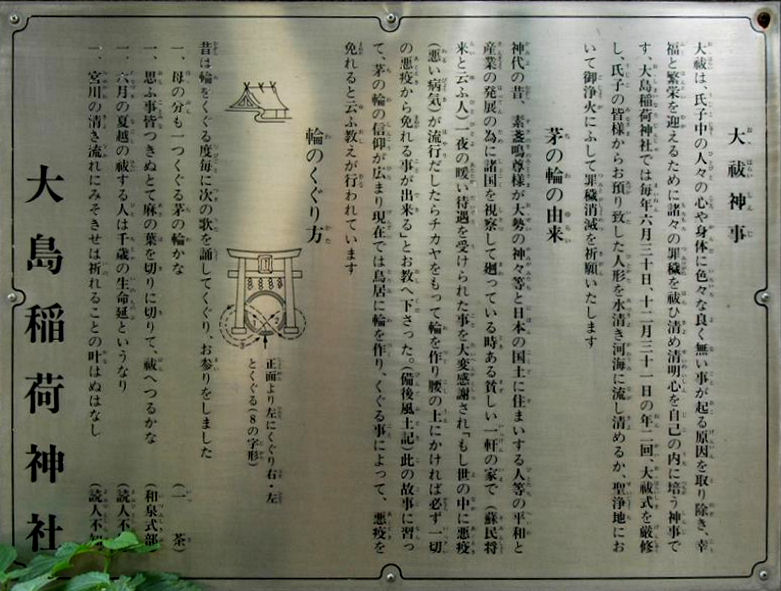 大祓神事
大祓は、氏子中の人々の心や身体に色々な良く無い事が起る原因を取り除き、幸
福と繁栄を迎えるために諸々の罪穢を祓ひ清め清明心を自己の内に培う神事で
す。大島稲荷神社では毎年六月三十日、十二月三十一日の年二回、大祓式を厳修
し、氏子の皆様からお預り致した人形を水清き河海に流し清めるか、聖浄地にお
いて御浄火にふして罪穢消滅を祈願いたします
茅の輪の由来
神代の昔、素盞嗚尊様が大勢の神々等と日本の国土に住まいする人等の平和と
産業の発展の為に諸国を視察して廻っている時ある貧しい一軒の家で（蘇民将
来と云ふ人）一夜の暖い待遇を受けられた事を大変感謝され「もし世の中に悪疫
（悪い病気）が流行だしたらチカヤをもって輪を作り腰の上にかければ必ず一切
の悪疫から免れる事が出来る」とお教へ下さった。（備後風土記）此の故事に習っ
て、茅の輪の信仰が広まり現在では鳥居に輪を作り、くぐる事によって、悪疫を
免れると云ふ教えが行われています
輪のくぐり方
正面より左にくぐり右・左
とくぐる（8の字形）
昔は輪をくぐる度毎に次の歌を誦してくぐり、お参りをしました
一、母の分も一つくぐる茅の輪かな（一茶）
一、思ふ事皆つきぬとて麻の葉を切りに切りて、祓へつるかな（和泉式部
一、六月の夏越の祓する人は千歳の生命延というなり（読人不知
一、宮川の清き流れにみそきせは祈れることの叶はぬはなし（読人不知
大島稲荷神社